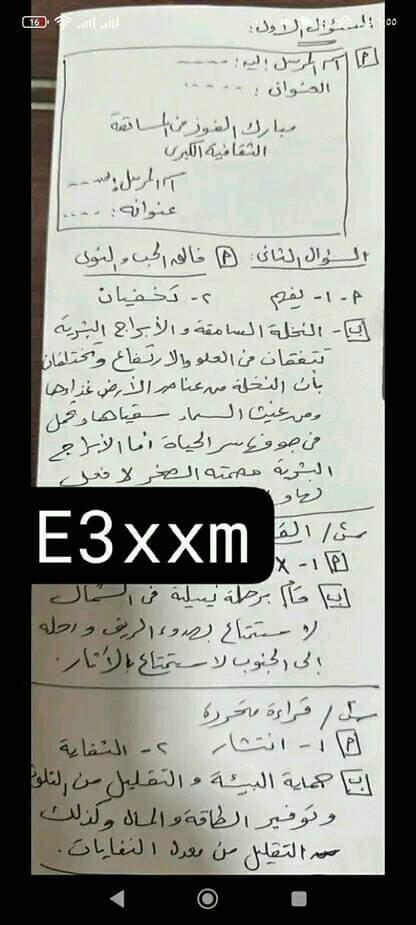 16
:00
السؤال الأول:
أ اسم المرسل إليه: ----
العنوان: ----
مبارك الفوز في المسابقة
الثقافية الكبرى
اسم المرسل: ----
عنوانه: ----
السؤال الثاني: أ فالق الحب والنوى
أ - ١ - يفهم ٢ - تخفيان
ب - النخلة السامقة والأبراج البشرية
تتفقان في العلو والارتفاع وتختلفان
بأن النخلة من عناصر الأرض غذاؤها
ومن غيث السماء سقياها وتحمل
في جوفها سر الحياة أما الأبراج
البشرية مصمتة الصخر لا
لها و
E3xxm
أ ١ - X
ب قام برحلة نيلية في الشمال
لاستمتاع بهدوء الريف ورحلة
إلى الجنوب لاستمتاع بالآثار.
س / قراءة متحررة
أ ١ - انتشار ٢ - النفاية
ب حماية البيئة والتقليل من التلوث
وتوفير الطاقة والمال وكذلك
التقليل من معدل النفايات.